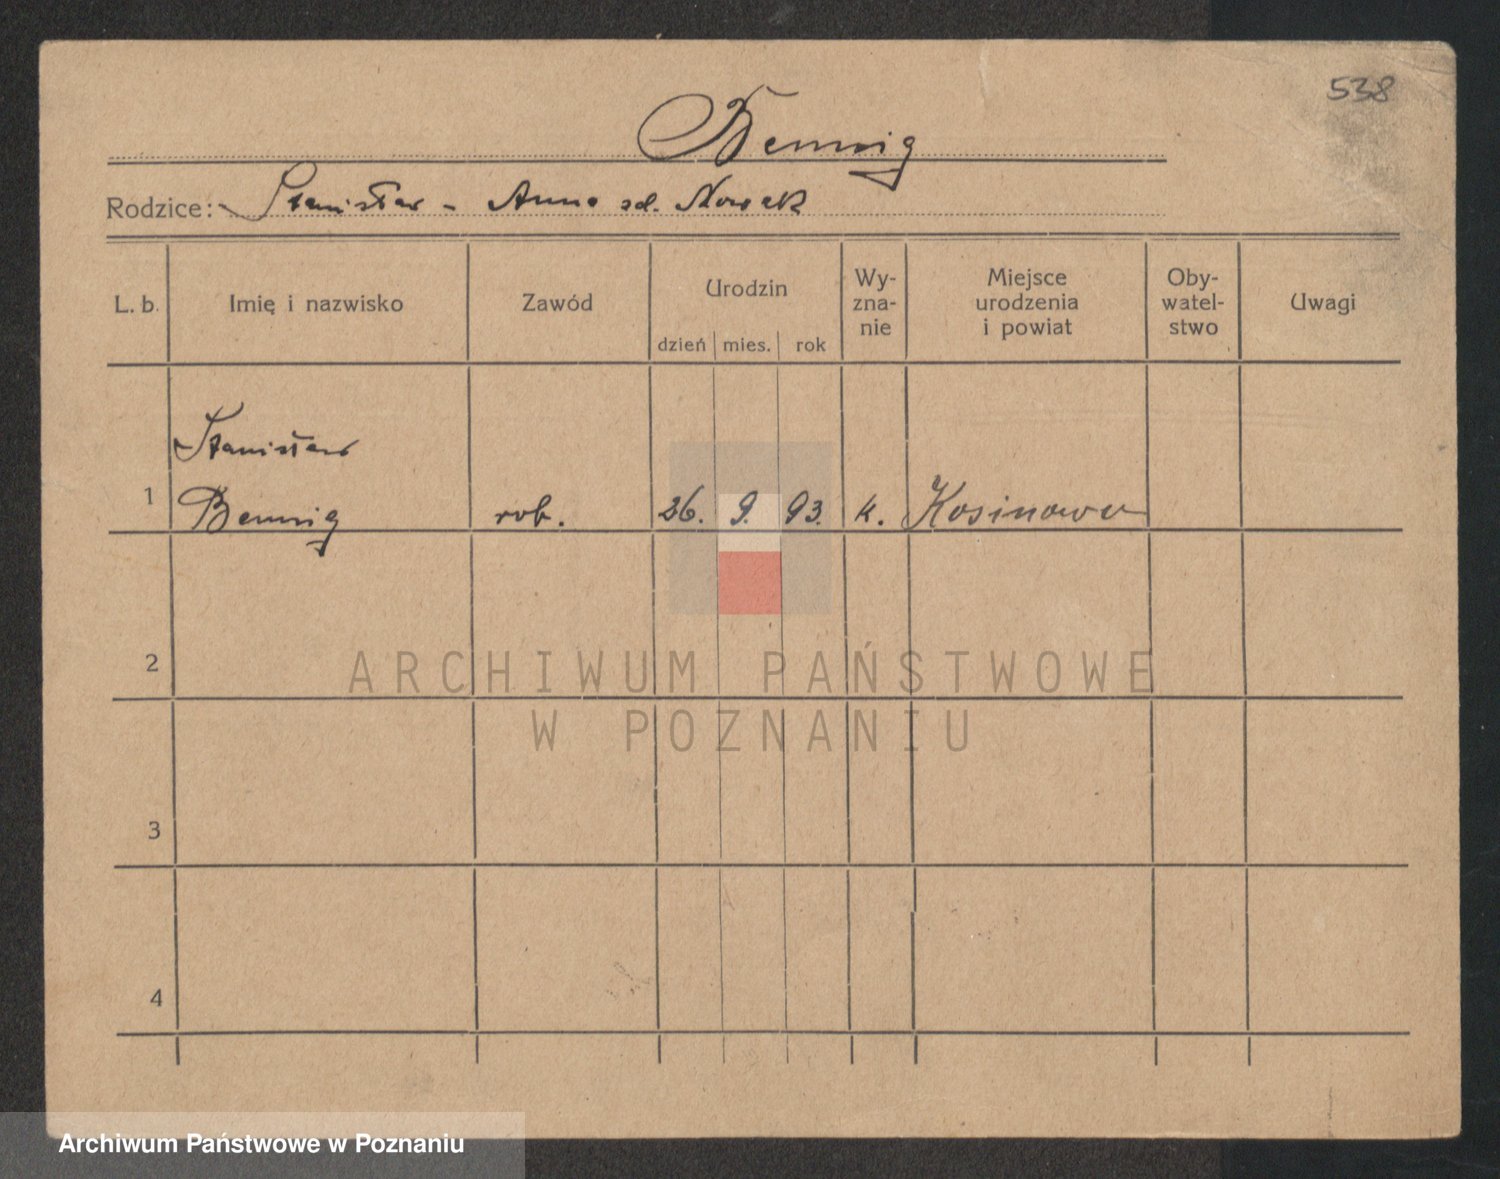 538
Bennig
Rodzice: Stanisław - Anna zd. Nowak
L. b. Imię i nazwisko Zawód Urodzin Wy- Miejsce Oby- Uwagi
zna- urodzenia watel-
nie i powiat stwo
dzień mies. rok
Stanisław
1 Bennig rob. 26. 9. 93. k. Kosinowo
2
ARCHIWUM PAŃSTWOWE
W POZNANIU
3
4
Archiwum Państwowe w Poznaniu